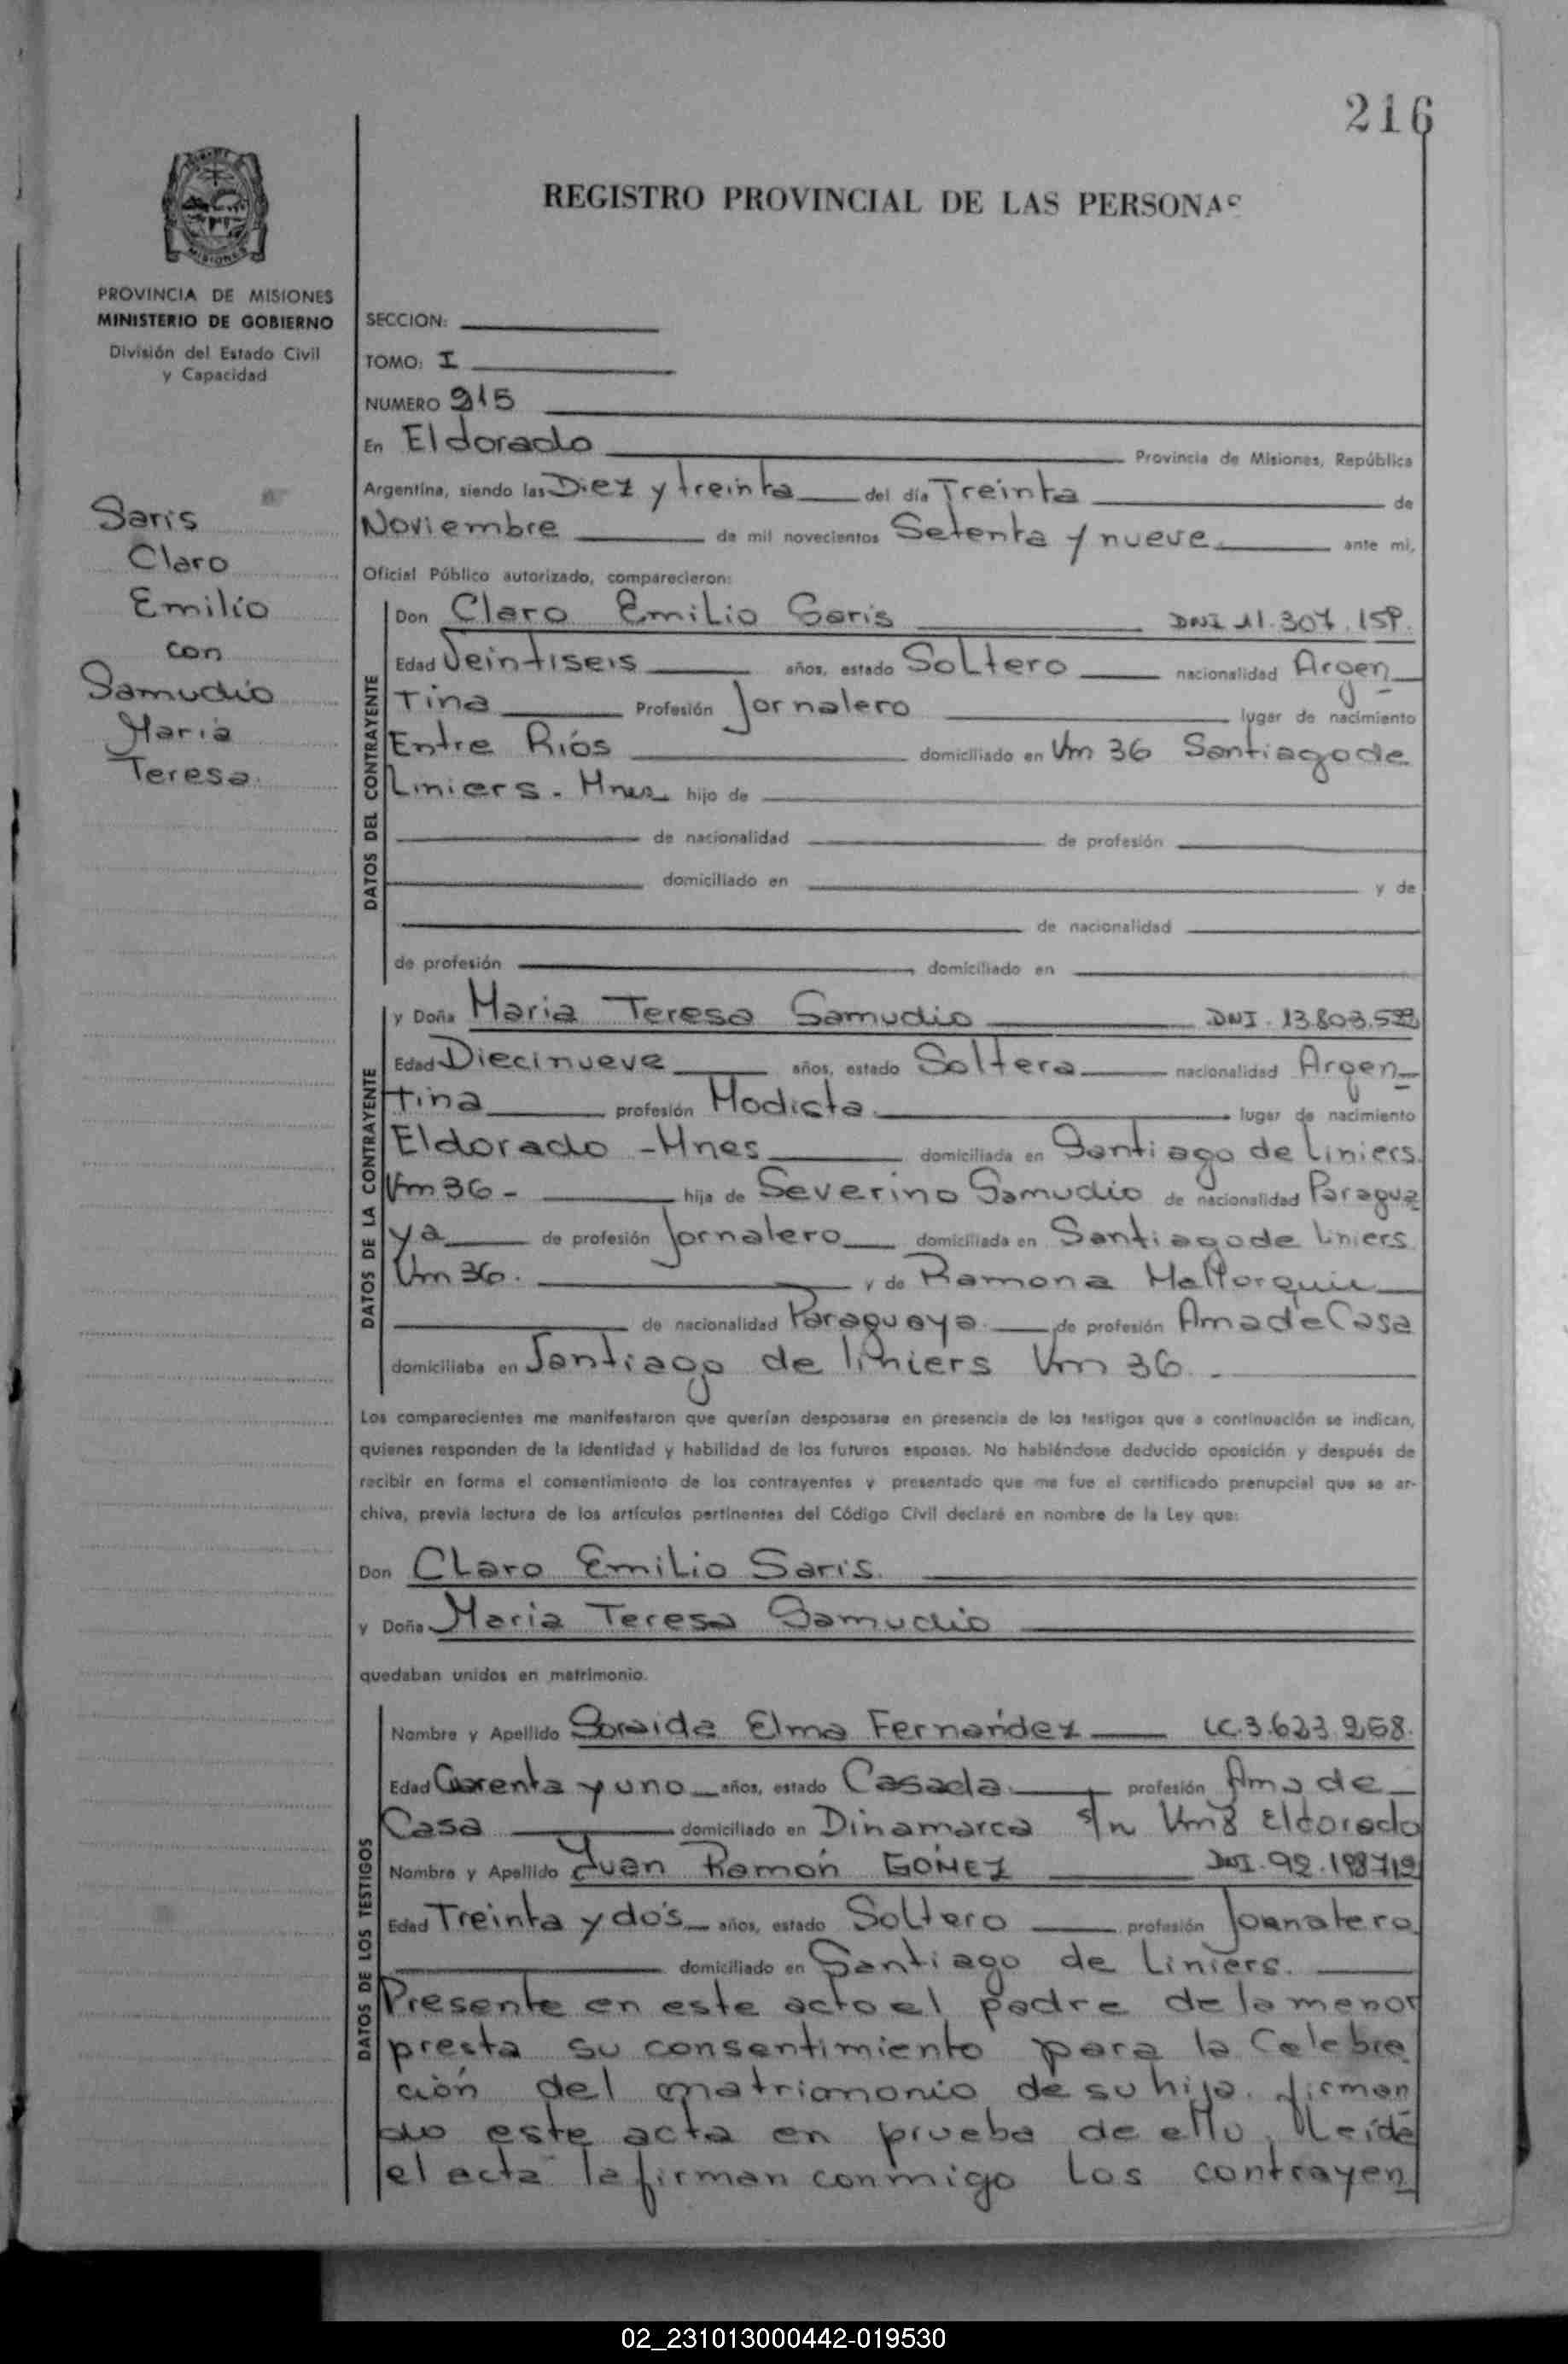 216
REGISTRO PROVINCIAL DE LAS PERSONAS
MISIONES
PROVINCIA DE MISIONES
MINISTERIO DE GOBIERNO
División del Estado Civil
y Capacidad
Saris
Claro
Emilio
con
Samudio
Maria
Teresa.
SECCION:
TOMO: I
NUMERO 215
En Eldorado Provincia de Misiones, República
Argentina, siendo las Diez y treinta del día Treinta de
Noviembre de mil novecientos Setenta y nueve ante mi,
Oficial Público autorizado, comparecieron:
DATOS DEL CONTRAYENTE
Don Claro Emilio Saris DNI 11.307.
Edad Veintiseis años, estado Soltero nacionalidad Argen
Tina Profesión Jornalero lugar de nacimiento
Entre Ríos domiciliado en Km 36 Santiago de
Liniers. Mnes hijo de
de nacionalidad de profesión
domiciliado en y de
de nacionalidad
de profesión domiciliado en
DATOS DE LA CONTRAYENTE
y Doña Maria Teresa Samudio DNI. 13.803.
Edad Diecinueve años, estado Soltera nacionalidad Argen
tina profesión Modista lugar de nacimiento
Eldorado - Mnes domiciliada en Santiago de Liniers
Km 36 - hija de Severino Samudio de nacionalidad Paragua
ya de profesión Jornalero domiciliada en Santiago de Liniers
Km 36. y de Ramona
de nacionalidad Paraguaya de profesión Ama de Casa
domiciliaba en Santiago de liniers Km 36.
Los comparecientes me manifestaron que querían desposarse en presencia de los testigos que a continuación se indican,
quienes responden de la identidad y habilidad de los futuros esposos. No habiéndose deducido oposición y después de
recibir en forma el consentimiento de los contrayentes y presentado que me fue el certificado prenupcial que se ar-
chiva, previa lectura de los artículos pertinentes del Código Civil declaré en nombre de la Ley que:
Don Claro Emilio Saris.
y Doña Maria Teresa Samudio
quedaban unidos en matrimonio.
DATOS DE LOS TESTIGOS
Nombre y Apellido Soraida Elma Fernández LC.3.623.258.
Edad Cuarenta y uno años, estado Casada profesión Ama de
Casa domiciliado en Dinamarca s/n Km 8 Eldorado
Nombre y Apellido Juan Ramón GOMEZ DNI. 92.
Edad Treinta y dos años, estado Soltero profesión Jornalero
domiciliado en Santiago de Liniers.
Presente en este acto el padre de la menor
presta su consentimiento para la Celebra
ción del matrimonio de su hija. firman
do este acta en prueba de ello. Leida
el acta la firman conmigo los contrayen
02_231013000442-019530